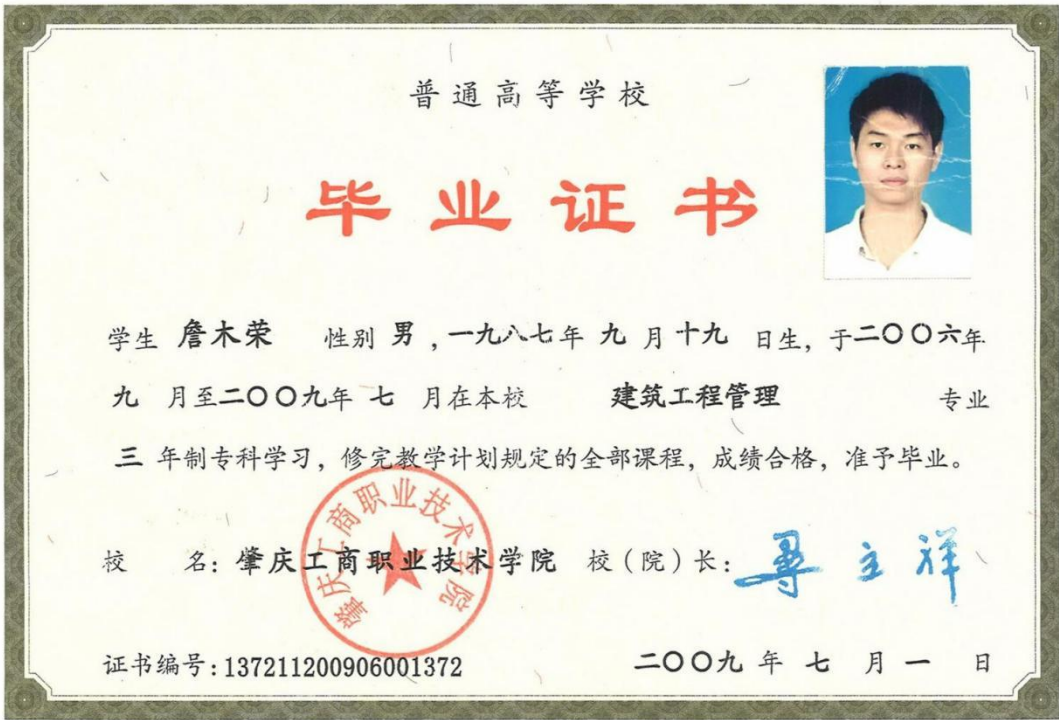 普通高等学校
毕业证书
学生 詹木荣 性别 男 ，一九八七年 九 月 十九 日生，于二〇〇六年
九 月至二〇〇九年 七 月在本校 建筑工程管理 专业
三 年制专科学习，修完教学计划规定的全部课程，成绩合格，准予毕业。
肇庆工商职业技术学院
校 名：肇庆工商职业技术学院 校（院）长：
证书编号：137211200906001372 二〇〇九 年 七 月 一 日